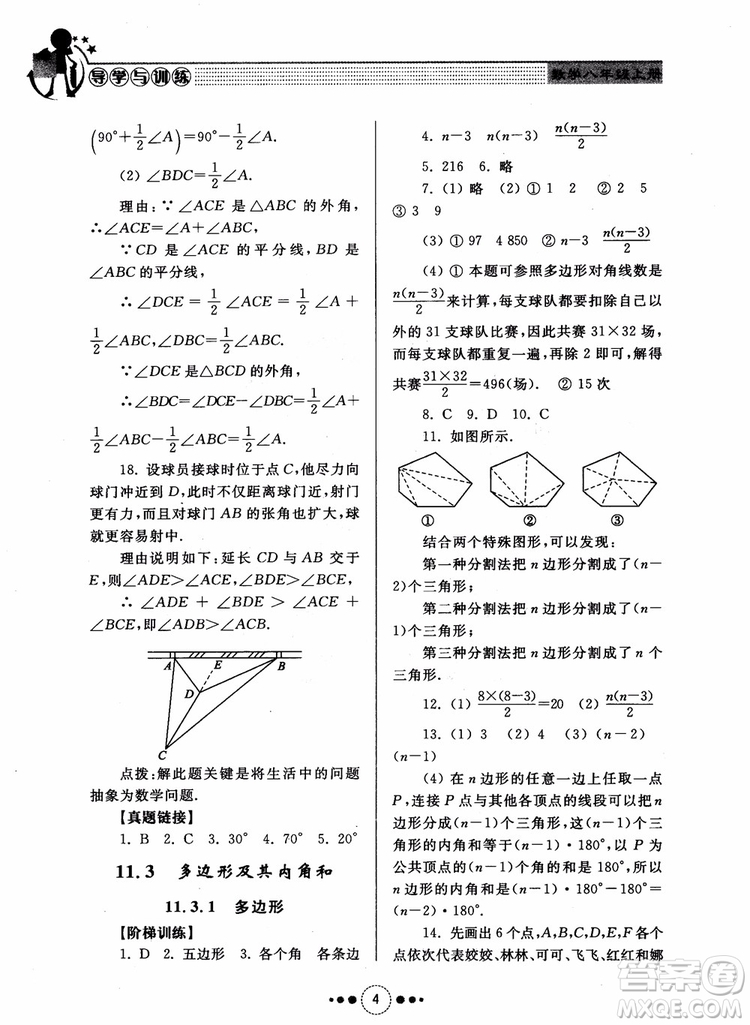 导学与训练
数学八年级上册
(90°+1/2∠A)=90°-1/2∠A.
(2) ∠BDC=1/2∠A.
理由:∵∠ACE 是△ABC 的外角,
∴∠ACE=∠A+∠ABC.
∵CD 是∠ACE 的平分线,BD 是
∠ABC 的平分线,
∴∠DCE=1/2∠ACE=1/2∠A+
1/2∠ABC,∠DBC=1/2∠ABC.
∵∠DCE 是△BCD 的外角,
∴∠BDC=∠DCE-∠DBC=1/2∠A+
1/2∠ABC-1/2∠ABC=1/2∠A.
18. 设球员接球时位于点 C,他尽力向
球门冲近到 D,此时不仅距离球门近,射门
有力,而且对球门 AB 的张角也扩大,球
就更容易射中.
理由说明如下:延长 CD 与 AB 交于
E,则∠ADE>∠ACE,∠BDE>∠BCE,
∴∠ADE+∠BDE>∠ACE+
∠BCE,即∠ADB>∠ACB.
A E B
D
C
点拨:解此题关键是将生活中的问题
抽象为数学问题.
【真题链接】
1. B 2. C 3. 30° 4. 70° 5. 20°
11.3 多边形及其内角和
11.3.1 多边形
【阶梯训练】
1. D 2. 五边形 3. 各个角 各条边
4. n-3 n(n-3) n(n-3)/2
5. 216 6. 略
7. (1) 略 (2) ① 1 2 ② 2 5
③ 3 9
(3) ① 97 4 850 ② n-3 n(n-3)/2
(4) ① 本题可参照多边形对角线数是
n(n-3)/2来计算,每支球队都要扣除自己以
外的 31 支球队比赛,因此共赛 31×32 场,
而每支球队都重复一遍,再除 2 即可,解得
共赛31×32/2=496(场). ② 15 次
8. C 9. D 10. C
11. 如图所示.
① ② ③
结合两个特殊图形,可以发现:
第一种分割法把 n 边形分割成了(n-
2)个三角形;
第二种分割法把 n 边形分割成了(n-
1)个三角形;
第三种分割法把 n 边形分割成了 n 个
三角形.
12. (1) 8×(8-3)/2=20 (2) n(n-3)/2
13. (1) 3 (2) 4 (3) (n-2)
(n-1)
(4) 在 n 边形的任意一边上任取一点
P,连接 P 点与其他各顶点的线段可以把 n
边形分成(n-1)个三角形,这(n-1)个三
角形的内角和等于(n-1)·180°,以 P 为
公共顶点的(n-1)个角的和是 180°,所以
n 边形的内角和是(n-1)·180°-180°=
(n-2)·180°.
14. 先画出 6 个点,A、B、C、D、E、F 各个
点依次代表姣姣、林林、可可、飞飞、红红和娜
4
答案圈
MXQE.COM